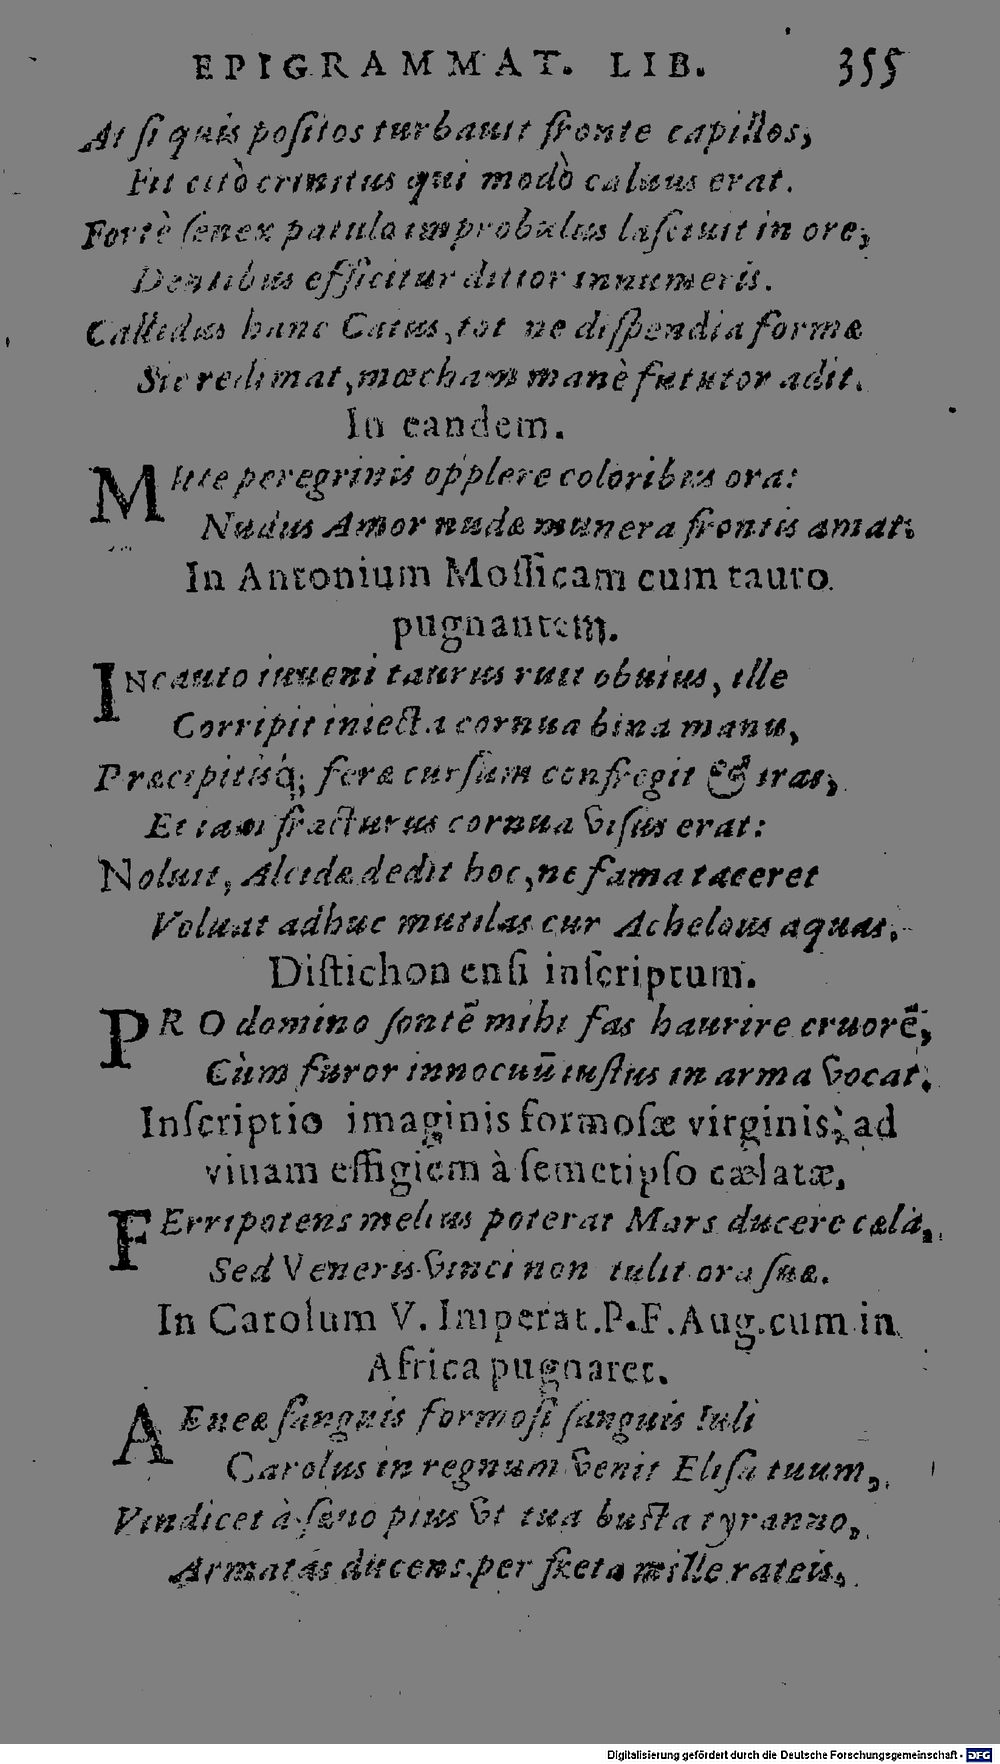 EPIGRAMMAT. LIB. 355
At ſi quis poſitos turbauit fronte capillos,
Fit citò crinitus qui modò caluus erat.
Fortè ſenex patulo improbulus laſciuit in ore,
Dentibus efficitur dittor innumeris.
Callidus hunc Catus, tot ne diſpendia formæ
Sic redimat, mœcham manè fututor adit.
In eandem.
MItte peregrinis opplere coloribus ora:
Nudus Amor nudæ munera frontis amat.
In Antonium Moſſicam cum tauro
pugnantem.
INcauto iuueni taurus ruit obuius, ille
Corripit iniecta cornua bina manu,
Præcipitisq́; feræ curſum confregit & iras,
Et iam fracturus cornua viſus erat:
Noluit, Alcidæ dedit hoc, ne fama taceret
Voluat adhuc mutilas cur Achelous aquas.
Diſtichon enſi inſcriptum.
PRO domino ſontē mihi fas haurire cruorē,
Cùm furor innocuū iuſtius in arma vocat.
Inſcriptio imaginis formoſæ virginis, ad
viuam effigiem à ſemetipſo cælatæ,
FErripotens melius poterat Mars ducere cælā,
Sed Veneris vinci non tulit ora ſuæ.
In Carolum V. Imperat. P. F. Aug. cum in
Africa pugnaret.
AEneæ ſanguis formoſi ſanguis Iuli
Carolus in regnum venit Eliſa tuum,
Vindicet à ſæuo pius vt tua buſta tyranno,
Armatas ducens per freta mille rateis,
Digitalisierung gefördert durch die Deutsche Forschungsgemeinschaft - DFG